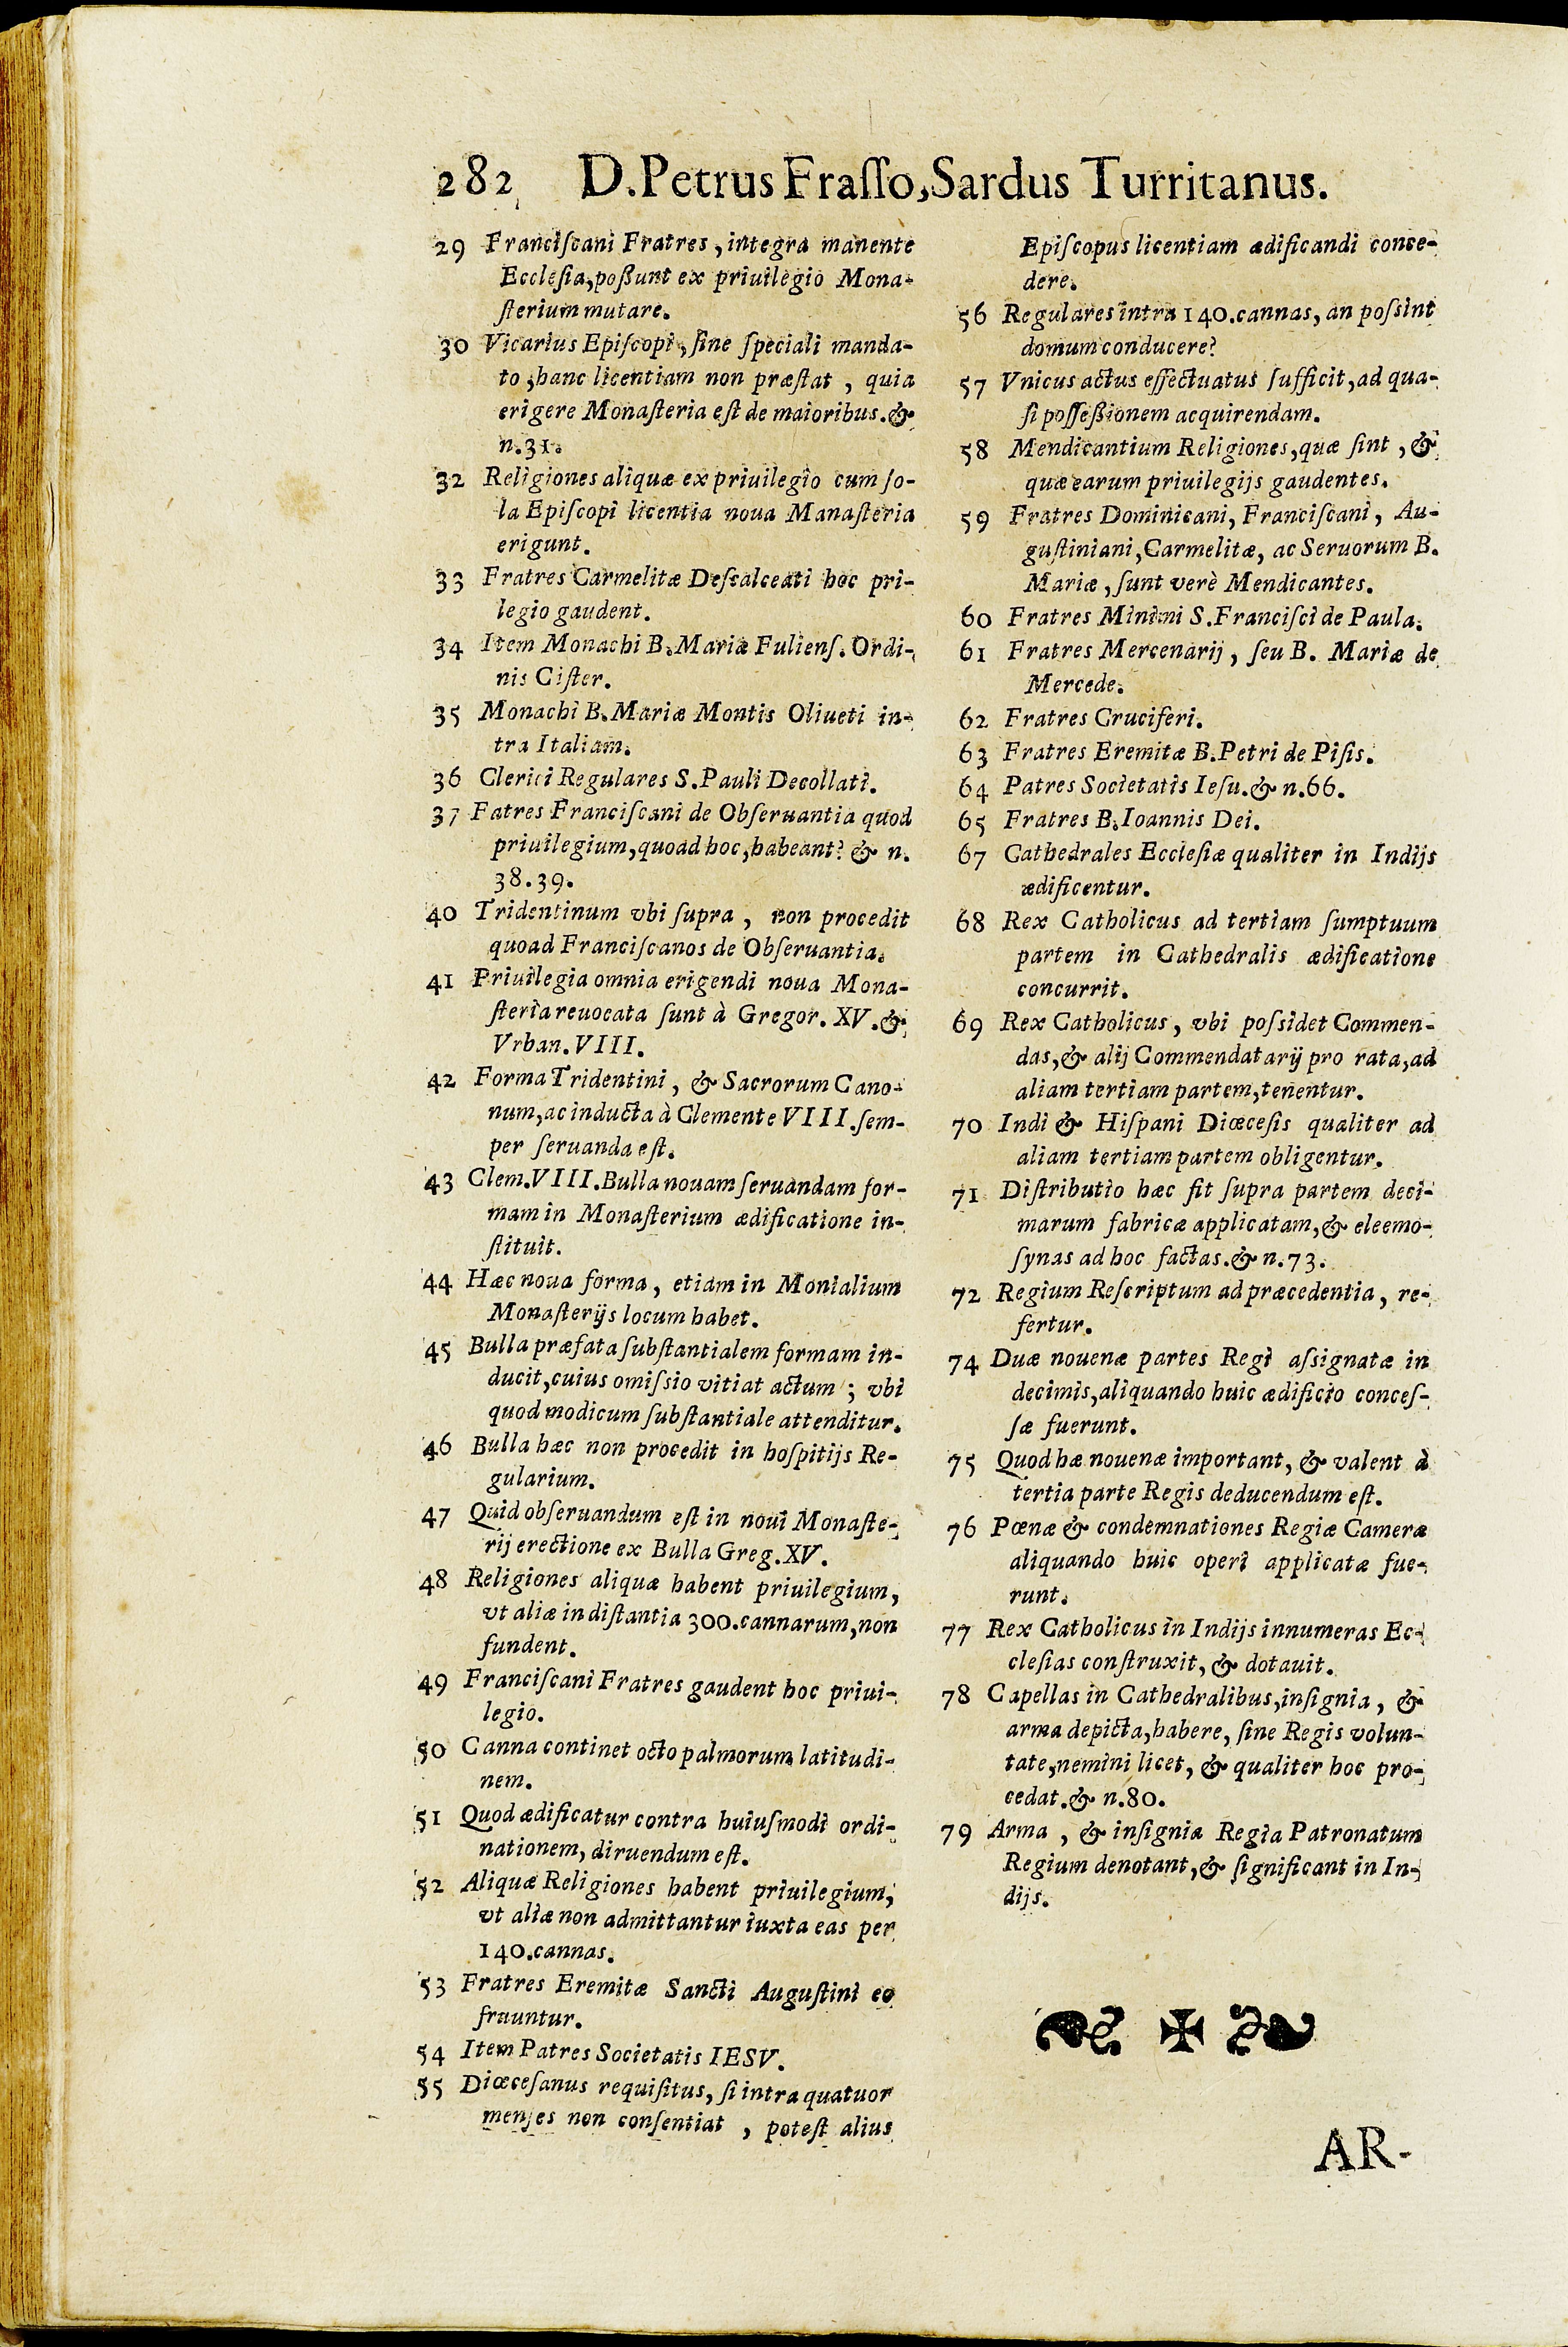 282 D.Petrus Fraſſo,Sardus Turritanus.
29 Franciſcani Fratres, integra manente
Eccleſia,poßunt ex priuilegio Mona-
ſterium mutare.
30 Vicarius Epiſcopi, ſine ſpeciali manda-
to, hanc licentiam non præſtat, quia
erigere Monaſteria eſt de maioribus.&
n.31.
32 Religiones aliquæ ex priuilegio cum ſo-
la Epiſcopi licentia noua Manaſteria
erigunt.
33 Fratres Carmelitæ Deſcalceati hoc pri-
legio gaudent.
34 Item Monachi B.Mariæ Fulienſ. Ordi-
nis Ciſter.
35 Monachi B.Mariæ Montis Oliueti in-
tra Italiam.
36 Clerici Regulares S.Pauli Decollati.
37 Fatres Franciſcani de Obſeruantia quod
priuilegium,quoad hoc,habeant? & n.
38.39.
40 Tridentinum vbi ſupra, non procedit
quoad Franciſcanos de Obſeruantia.
41 Priuilegia omnia erigendi noua Mona-
ſteria reuocata ſunt à Gregor. XV.&
Vrban.VIII.
42 Forma Tridentini, & Sacrorum Cano-
num,ac inducta à Clemente VIII.ſem-
per ſeruanda eſt.
43 Clem.VIII.Bulla nouam ſeruandam for-
mam in Monaſterium ædificatione in-
ſtituit.
44 Hæc noua forma, etiam in Monialium
Monaſterijs locum habet.
45 Bulla præfata ſubſtantialem formam in-
ducit,cuius omiſsio vitiat actum ; vbi
quod modicum ſubſtantiale attenditur.
46 Bulla hæc non procedit in hoſpitijs Re-
gularium.
47 Quid obſeruandum eſt in noui Monaſte-
rij erectione ex Bulla Greg.XV.
48 Religiones aliquæ habent priuilegium,
vt aliæ in diſtantia 300.cannarum,non
fundent.
49 Franciſcani Fratres gaudent hoc priui-
legio.
50 Canna continet octo palmorum latitudi-
nem.
51 Quod ædificatur contra huiuſmodi ordi-
nationem, diruendum eſt.
52 Aliquæ Religiones habent priuilegium,
vt aliæ non admittantur iuxta eas per
140.cannas.
53 Fratres Eremitæ Sancti Auguſtini eo
fruuntur.
54 Item Patres Societatis IESV.
55 Diœceſanus requiſitus, ſi intra quatuor
menſes non conſentiat, poteſt alius
Epiſcopus licentiam ædificandi conce-
dere.
56 Regulares intra 140.cannas, an poſsint
domum conducere?
57 Vnicus actus effectuatus ſufficit, ad qua-
ſi poſſeßionem acquirendam.
58 Mendicantium Religiones,quæ ſint, &
quæ earum priuilegijs gaudentes.
59 Fratres Dominicani, Franciſcani, Au-
guſtiniani,Carmelitæ, ac Seruorum B.
Mariæ, ſunt verè Mendicantes.
60 Fratres Minimi S.Franciſci de Paula.
61 Fratres Mercenarij, ſeu B. Mariæ de
Mercede.
62 Fratres Cruciferi.
63 Fratres Eremitæ B.Petri de Piſis.
64 Patres Societatis Ieſu.& n.66.
65 Fratres B.Ioannis Dei.
67 Cathedrales Eccleſiæ qualiter in Indijs
ædificentur.
68 Rex Catholicus ad tertiam ſumptuum
partem in Cathedralis ædificatione
concurrit.
69 Rex Catholicus, vbi poſsidet Commen-
das,& alij Commendatarij pro rata,ad
aliam tertiam partem,tenentur.
70 Indi & Hiſpani Diœceſis qualiter ad
aliam tertiam partem obligentur.
71 Diſtributio hæc fit ſupra partem deci-
marum fabricæ applicatam,& eleemo-
ſynas ad hoc factas.& n.73.
72 Regium Reſcriptum ad præcedentia, re-
fertur.
74 Duæ nouenæ partes Regi aſsignatæ in
decimis,aliquando huic ædificio conceſ-
ſæ fuerunt.
75 Quod hæ nouenæ important, & valent à
tertia parte Regis deducendum eſt.
76 Pœnæ & condemnationes Regiæ Cameræ
aliquando huic operi applicatæ fue-
runt.
77 Rex Catholicus in Indijs innumeras Ec-
cleſias conſtruxit, & dotauit.
78 Capellas in Cathedralibus,inſignia, &
arma depicta,habere, ſine Regis volun-
tate,nemini licet, & qualiter hoc pro-
cedat.& n.80.
79 Arma, & inſignia Regia Patronatum
Regium denotant,& ſignificant in In-
dijs.
AR-